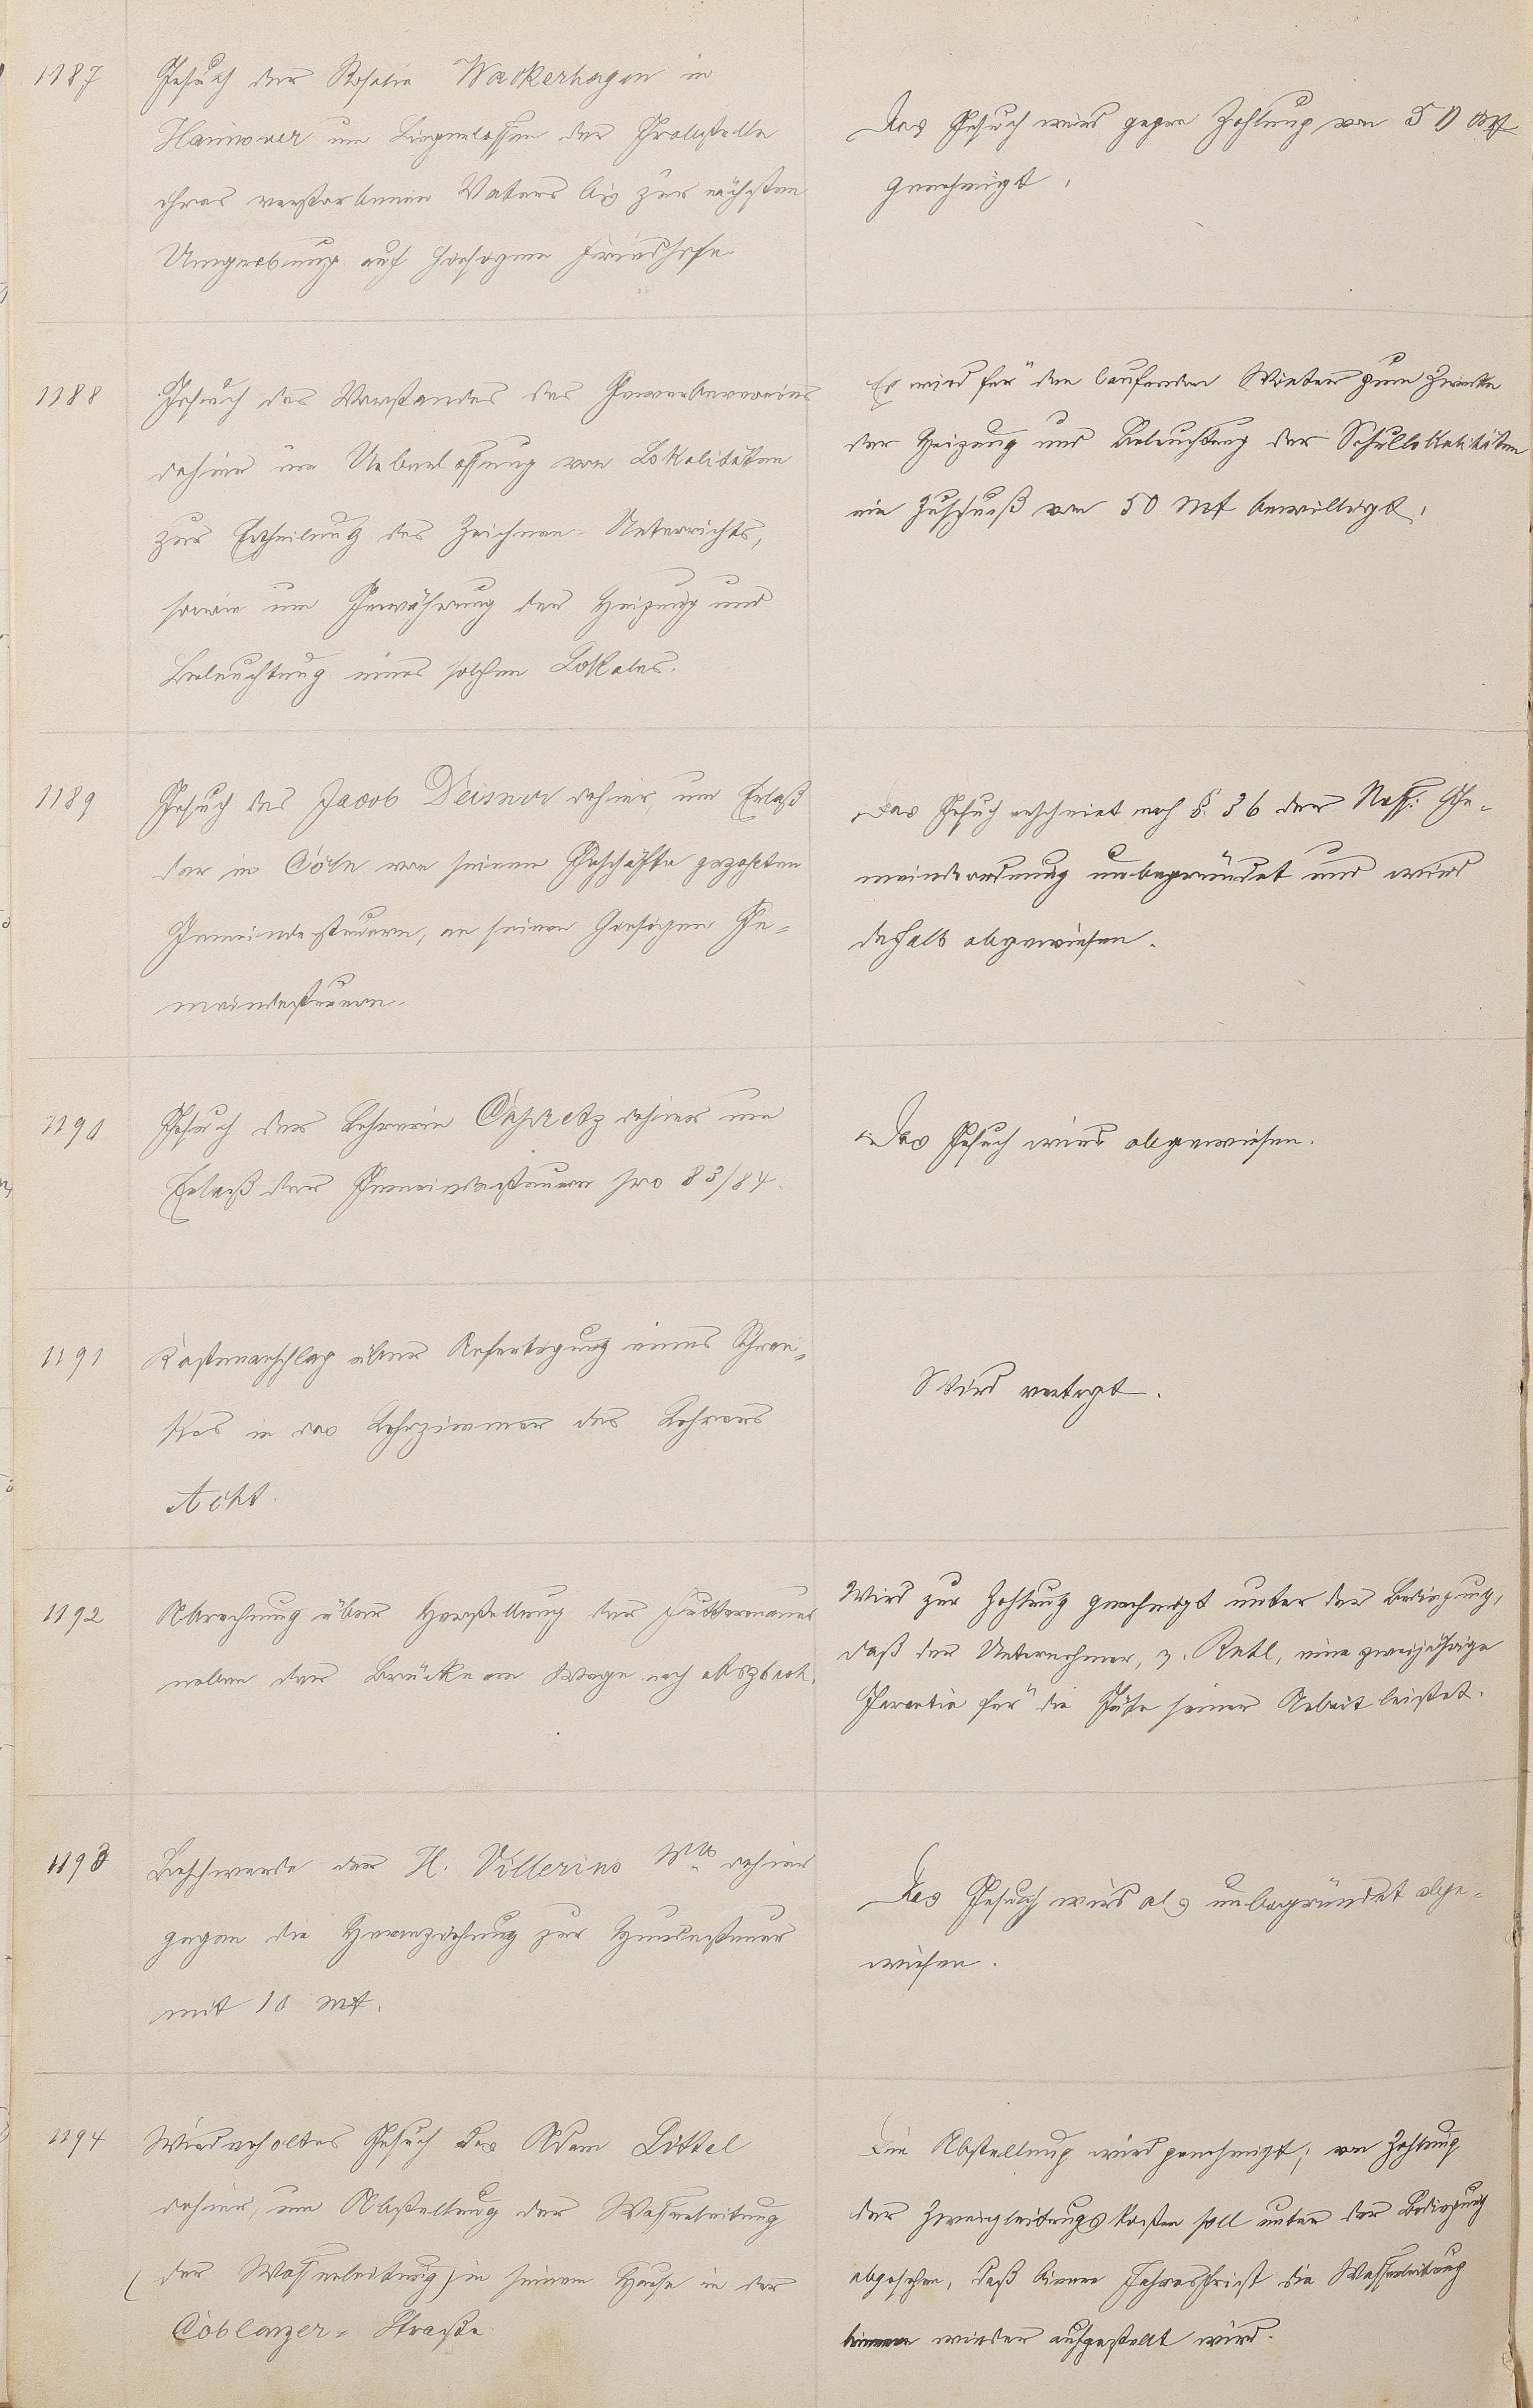 1187
Gesuch der Rosalie Wackerhagen in
Hannover um Liegenlassen der Grabstelle
ihres verstorbenen Vaters bis zur nächsten
Umgrabung auf hiesigem Friedhofe.
Das Gesuch wird gegen Zahlung von 50 Mk
genehmigt.
1188
Gesuch des Vorstandes des Gewerbevereins
dahier um Ueberlassung von Lokalitäten
zur Ertheilung des Zeichnen-Unterrichts,
sowie um Gewährung der Heizung und
Beleuchtung eines solchen Lokales.
Es wird für den laufenden Winter zum Zwecke
der Heizung und Beleuchtung der Schullokalitäten
ein Zuschuß von 50 Mk bewilligt.
1189
Gesuch des Jacob Deisner dahier, um Erlaß
der in Cöln von seinem Geschäfte gezahlten
Gemeindesteuern, an seinen hiesigen Ge-
meindesteuern.
Das Gesuch erscheint nach §. 36 der Nass. Ge-
meindeordnung unbegründet und wird
deßhalb abgewiesen.
1190
Gesuch der Lehrerin Capretz dahier um
Erlaß der Gemeindesteuern pro 83/84.
Das Gesuch wird abgewiesen.
1191
Kostenanschlag über Anfertigung eines Schran-
kes in das Lehrzimmer des Lehrers
Acht.
Wird vertagt.
1192
Abrechnung über Herstellung der Futtermauer
neben der Brücke am Wege nach
Wird zur Zahlung genehmigt unter der Bedingung,
daß der Unternehmer, eine zweijährige
Garantie für die Güte seiner Arbeit leistet.
1193
Beschwerde der H. Villerius Wb dahier
gegen die Heranziehung zur Hundesteuer
mit 10 Mk.
Das Gesuch wird als unbegründet abge-
wiesen.
1194
Wiederholtes Gesuch des Adam Littel
dahier, um Abstellung der Wasserleitung
(der Wasserleitung) in seinem Hause in der
Coblenzer-Straße.
Die Abstellung wird genehmigt; von Zahlung
der Zweigleitungskosten soll unter der Bedingung
abgesehen, daß binnen Jahresfrist die Wasserleitung
binnen wieder aufgestellt wird.